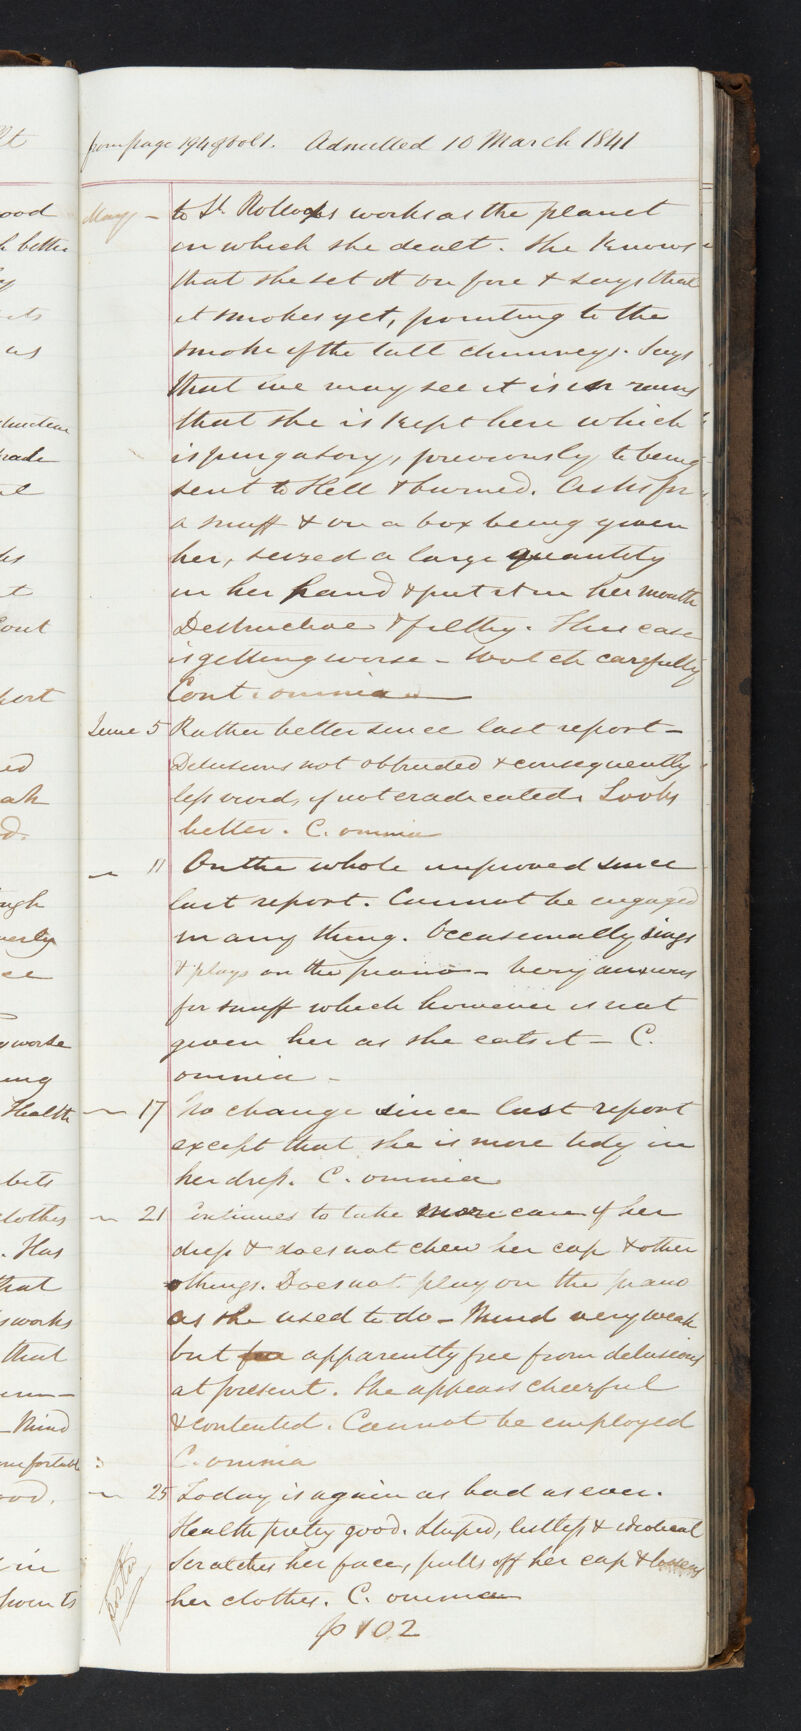 from page 194 of vol 1. Admitted 10 March 1841
May - to St. Rollox's works as the planet
in which she dealt. She knows
that she set it on fire & says that
it smokes yet, pointing to the
smoke of the tall chimneys. Says
that we may see it is in ruins
that she is kept here which
is purgatory, previously to being
sent to Hell & burned. Asks for
a snuff & on a box being given
her, seized a large quantity
in her hand & put it in her mouth
Destructive & filthy. Her case
is getting worse - Watch carefully
Cont: omnia
June 5 Rather better since last report -
Delusions not obtruded & consequently
less vivid, if not eradicated. Looks
better. C. omnia
" 11 On the whole improved since
last report. Cannot be engaged
in any thing. Occasionally sings
& plays on the piano - Very anxious
for snuff which however is not
given her as she eats it - C.
omnia -
" 17 No change since last report
except that she is more tidy in
her dress. C. omnia
" 21 Continues to take more care of her
dress & does not chew her cap & other
things. Does not play on the piano
as she used to do - Mind very weak
but apparently free from delusions
at present. She appears cheerful
& contented. Cannot be employed
C. omnia
" 25 Today is again as bad as ever.
Health pretty good. Stupid, listless &
Scratches her face, pulls off her cap &
her clothes. C. omnia
p 102